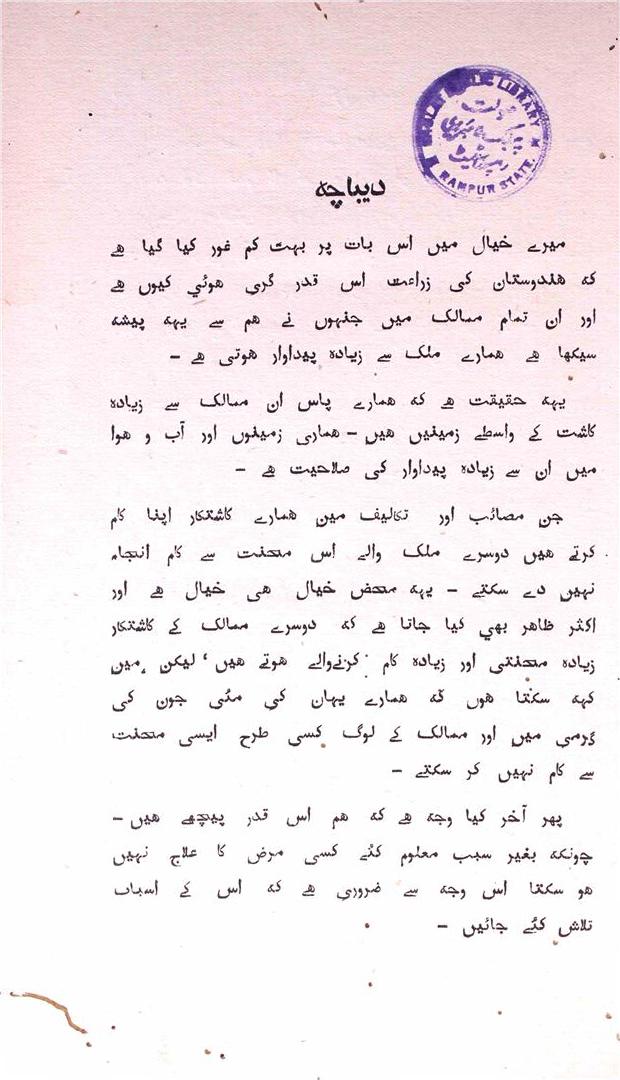 LIBRARY
RAMPUR STATE
دیباچہ
میرے خیال میں اس بات پر بہت کم غور کیا گیا ہے
کہ ہندوستان کی زراعت اس قدر گری ہوئي کیوں ہے
اور ان تمام ممالک میں جنہوں نے ہم سے یہہ پیشہ
سیکھا ہے ہمارے ملک سے زیادہ پیداوار ہوتی ہے –
یہہ حقیقت ہے کہ ہمارے پاس ان ممالک سے زیادہ
کاشت کے واسطے زمینیں ہیں – ہماری زمینوں اور آب و ہوا
میں ان سے زیادہ پیداوار کی صلاحیت ہے –
جن مصائب اور تکالیف میں ہمارے کاشتکار اپنا کام
کرتے ہیں دوسرے ملک والے اس محنت سے کام انجام
نہیں دے سکتے – یہہ محض خیال ہی خیال ہے اور
اکثر ظاہر بھي کیا جاتا ہے کہ دوسرے ممالک کے کاشتکار
زیادہ محنتی اور زیادہ کام کرنےوالے ہوتے ہیں ' لیکن میں
کہہ سکتا ہوں کہ ہمارے یہاں کی مئی جون کی
گرمي میں اور ممالک کے لوگ کسی طرح ایسی محنت
سے کام نہیں کر سکتے –
پھر آخر کیا وجہ ہے کہ ہم اس قدر پیچھے ہیں –
چونکہ بغیر سبب معلوم کئے کسی مرض کا علاج نہیں
ہو سکتا اس وجہ سے ضروري ہے کہ اس کے اسباب
تلاش کئے جائیں –